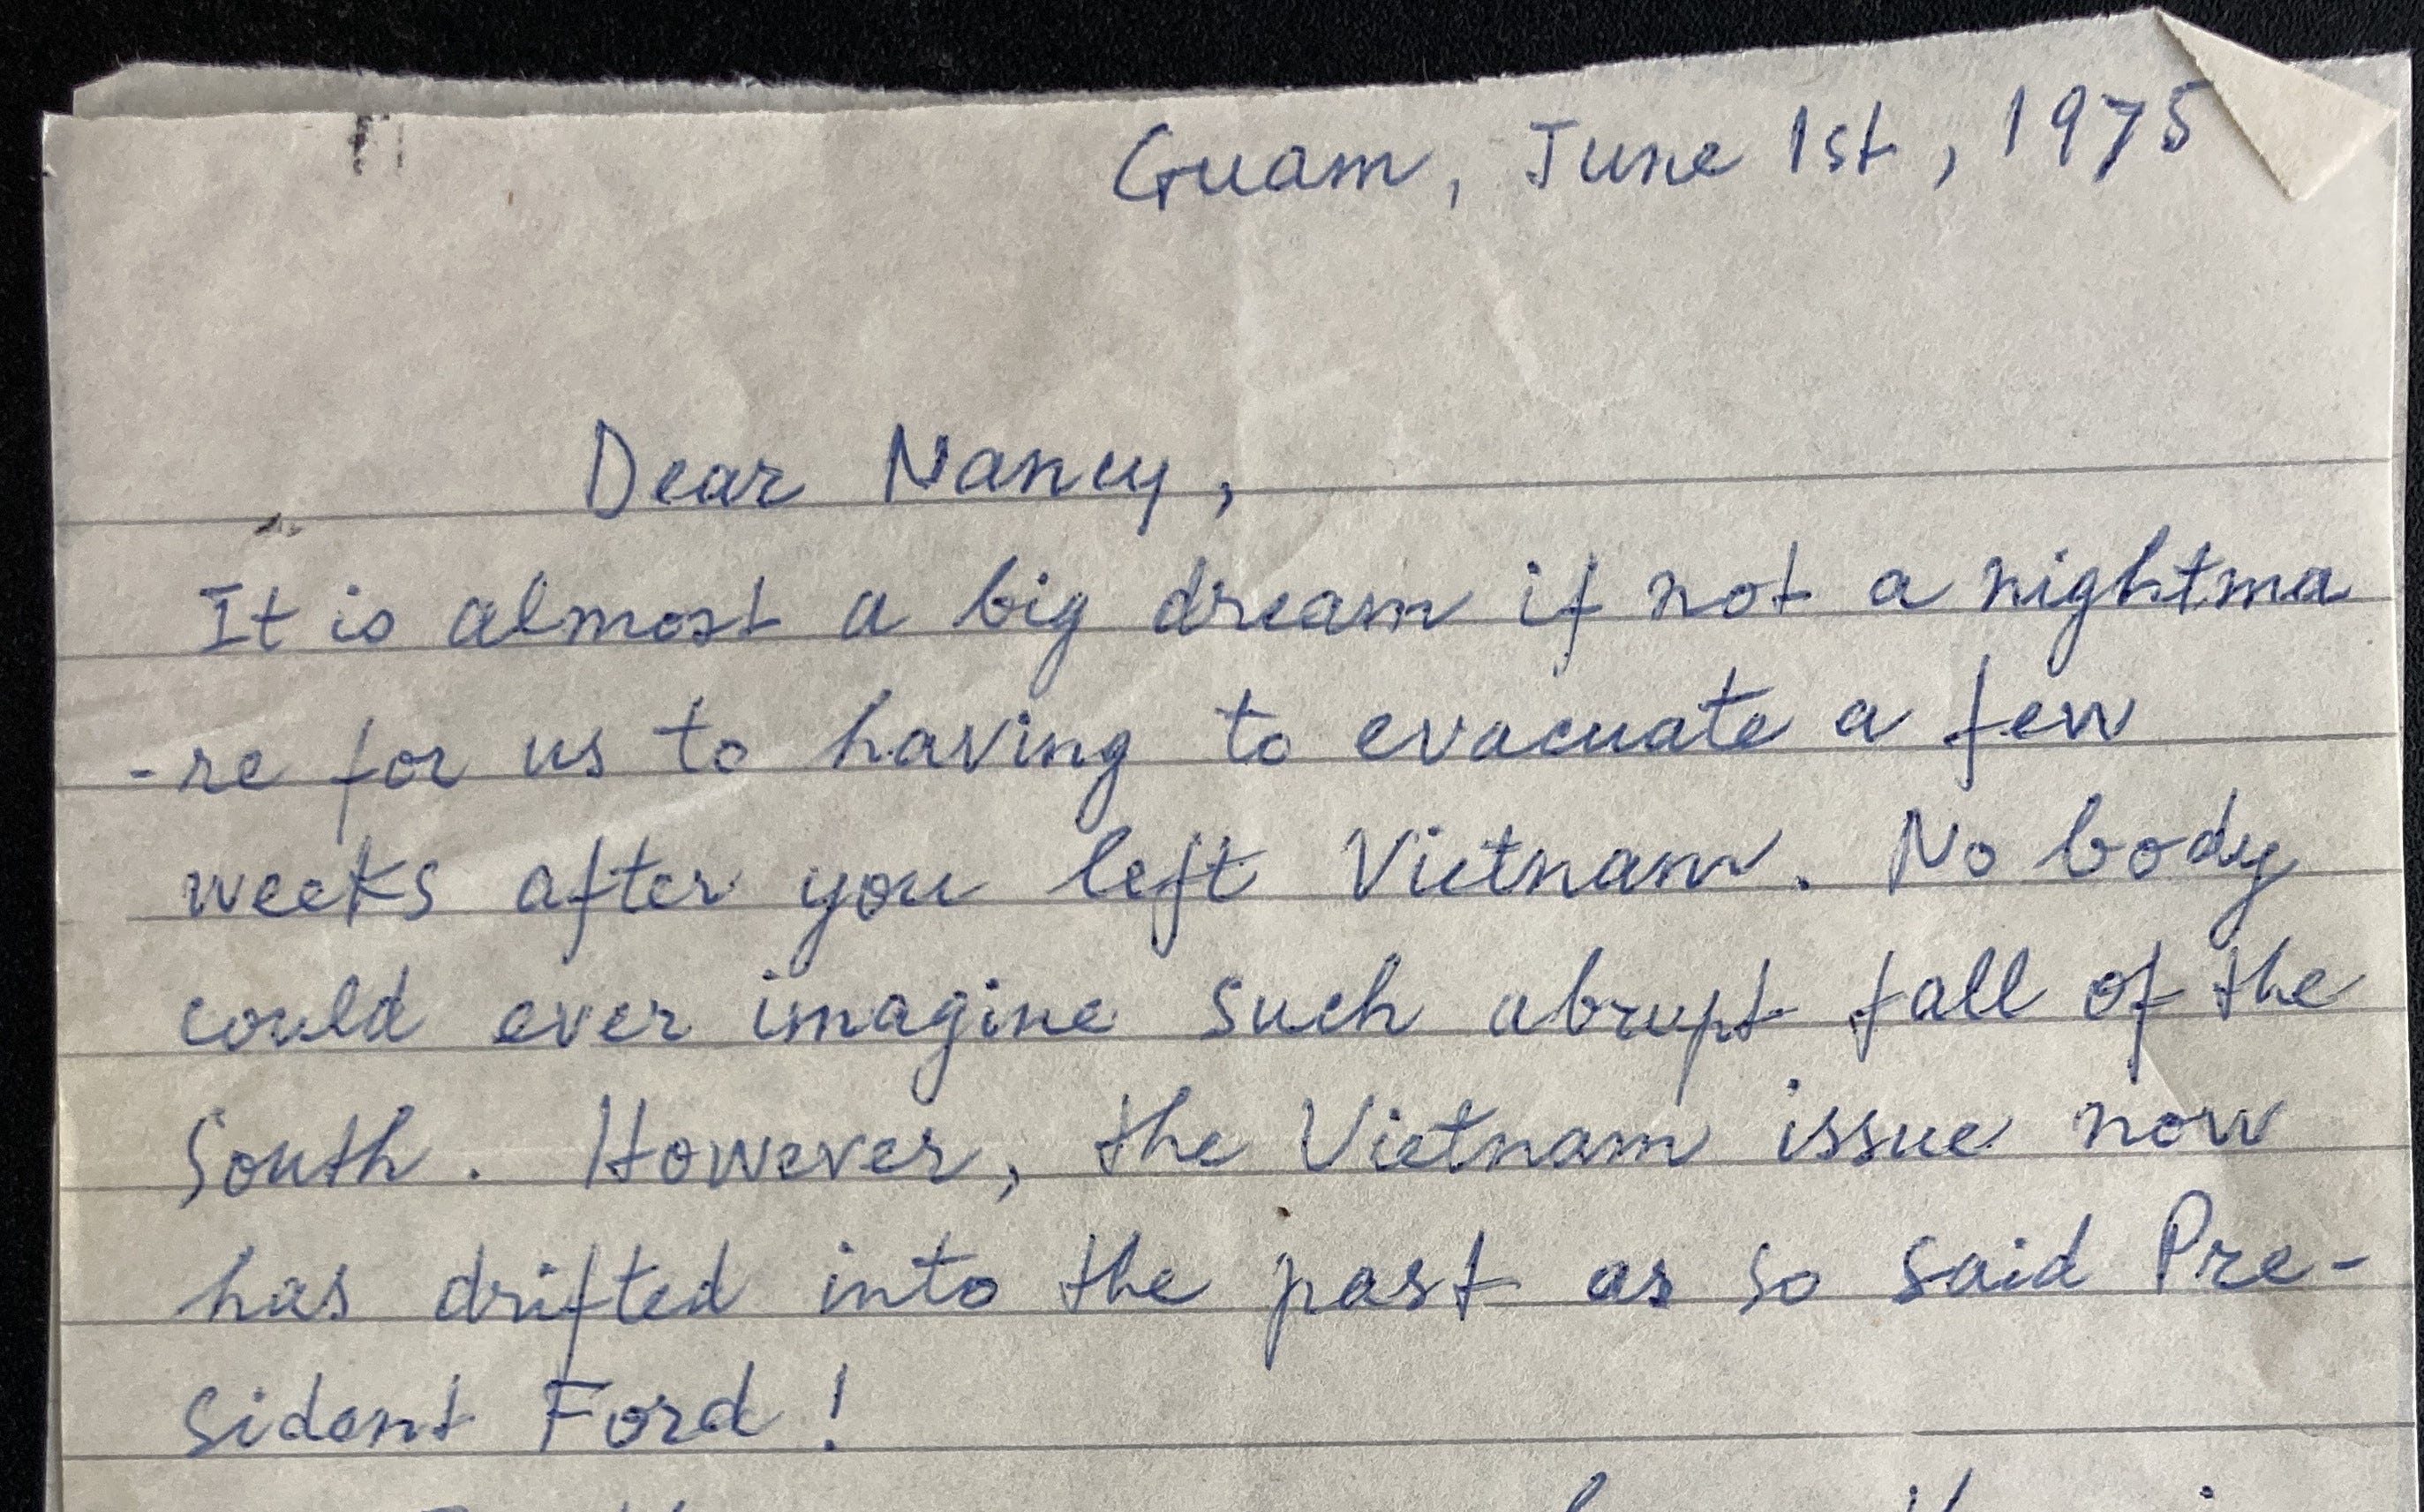 Guam, June 1st, 1975
Dear Nancy,
It is almost a big dream if not a nightma
-re for us to having to evacuate a few
weeks after you left Vietnam. No body
could ever imagine such abrupt fall of the
South. However, the Vietnam issue now
has drifted into the past as so said Pre-
sident Ford!